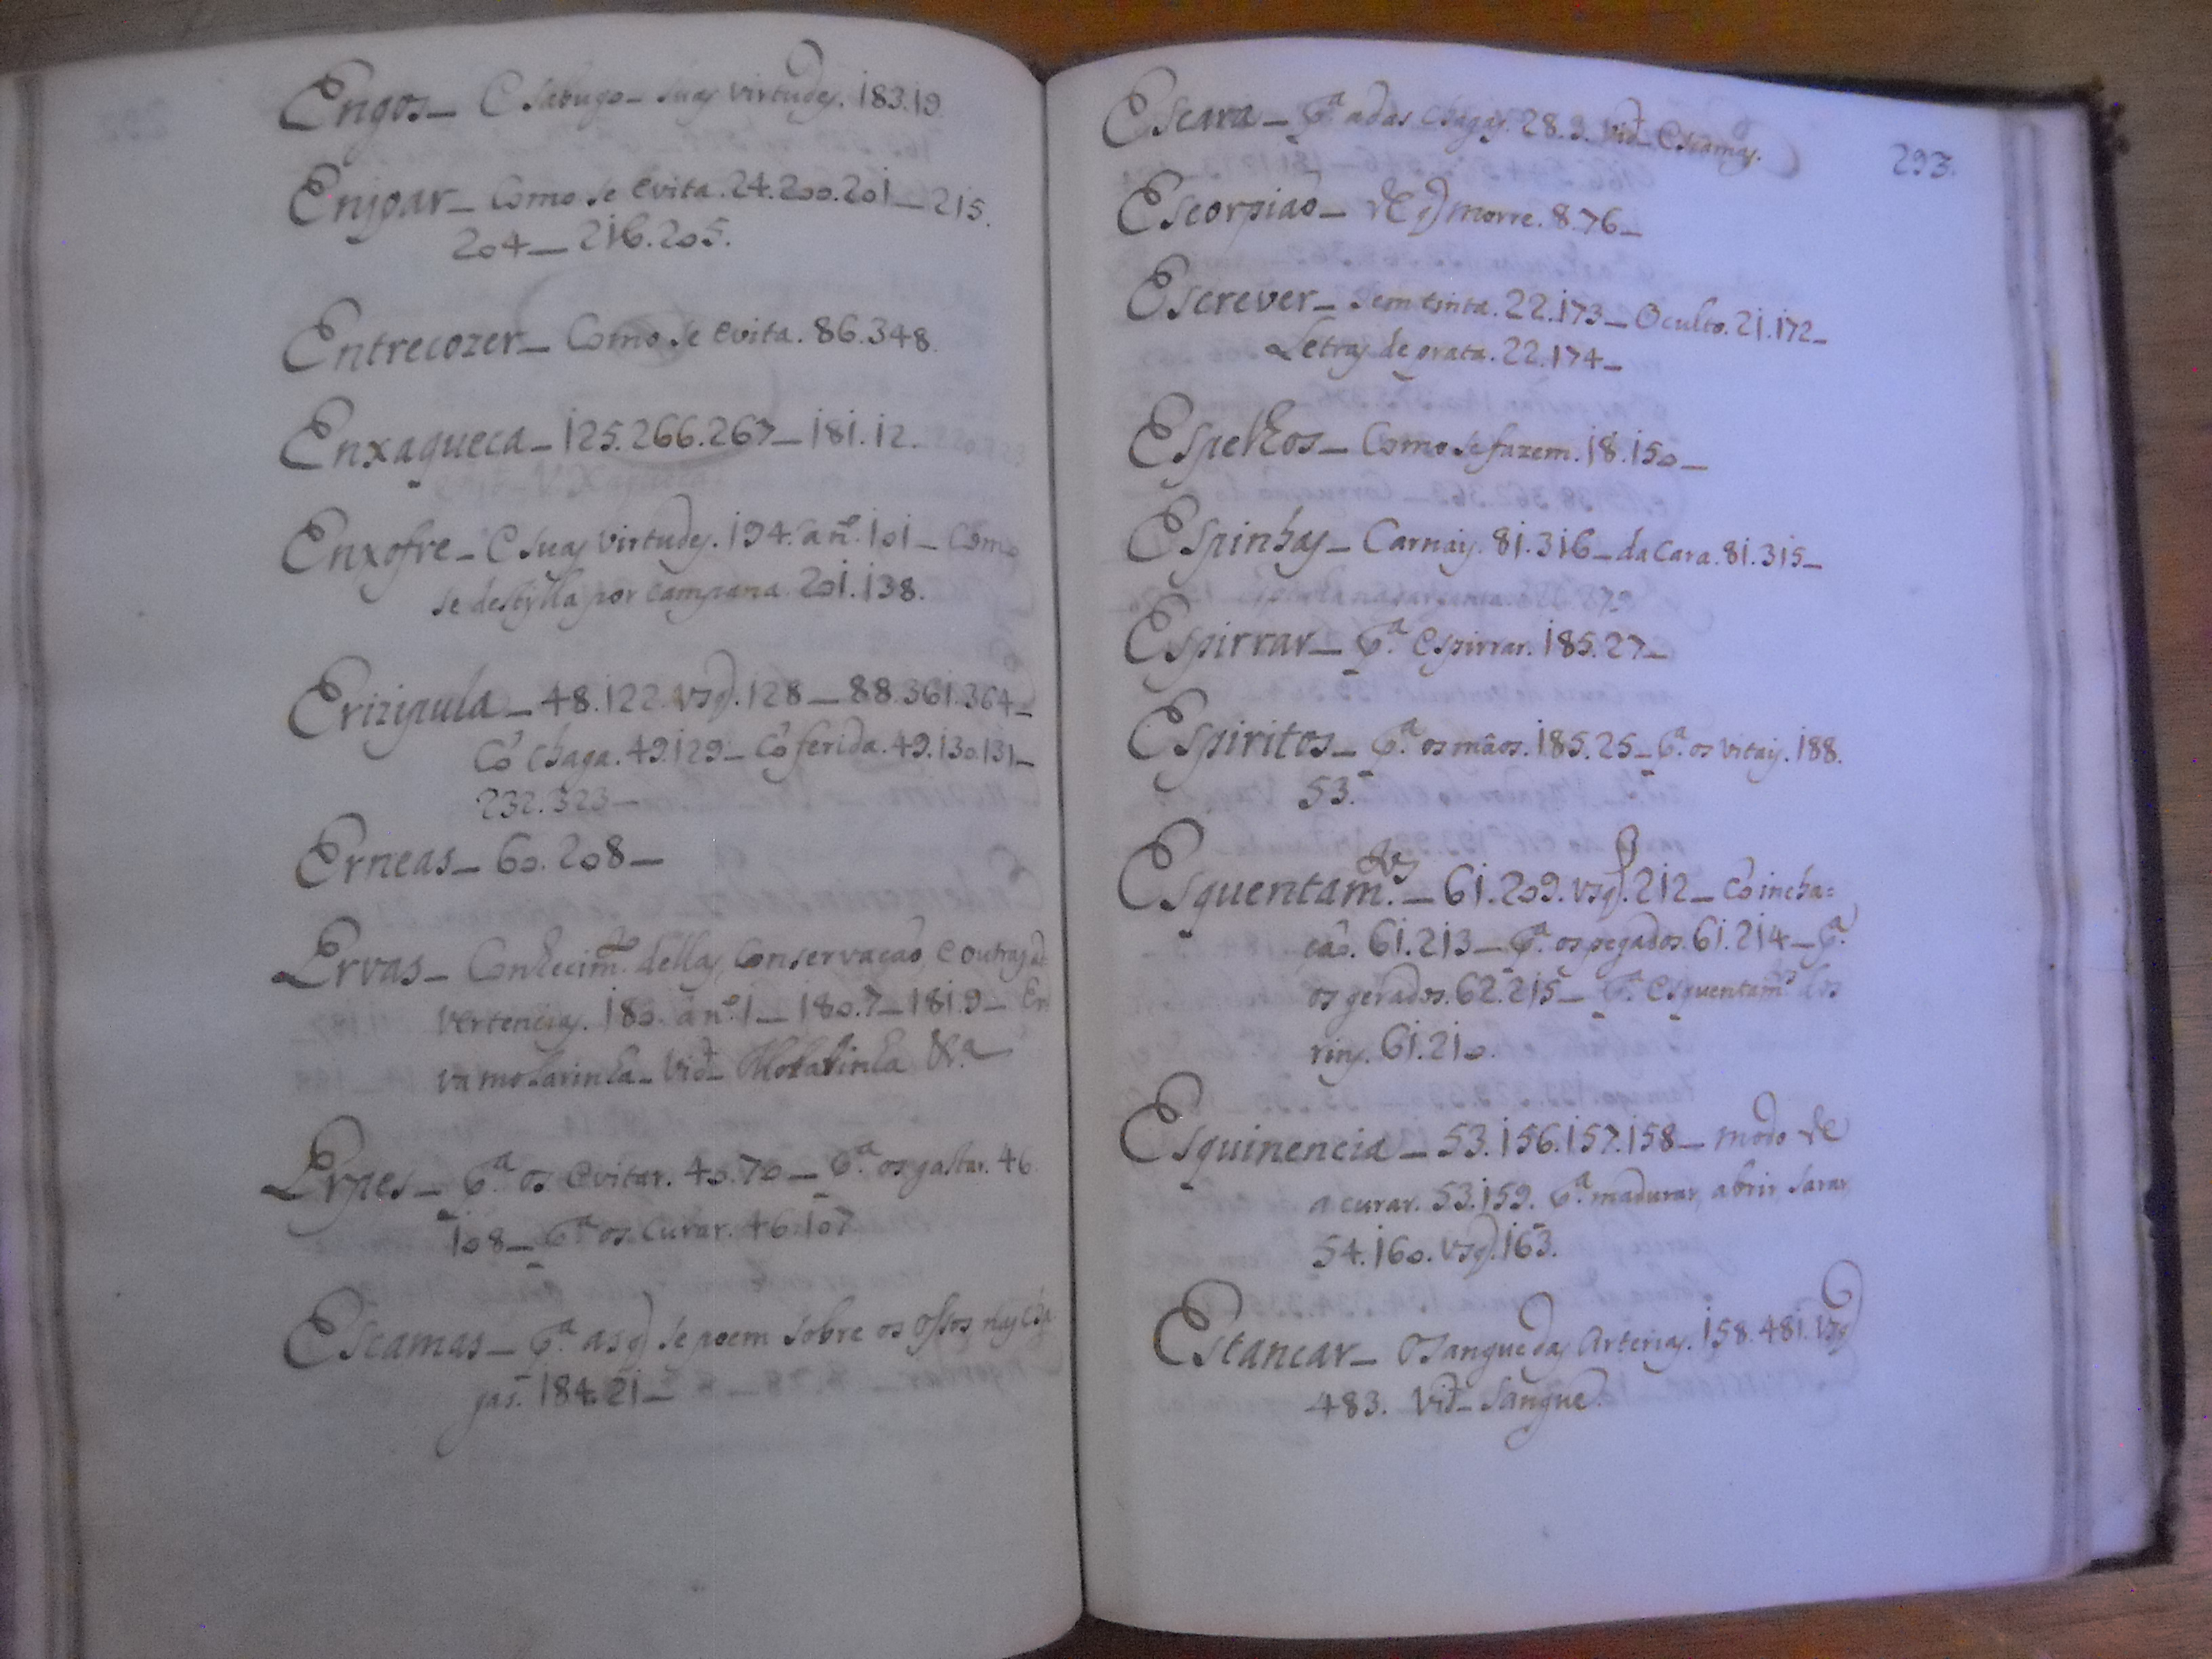 Engos_ E sabugo_ suas virtudes. 183.19
Enjoar_ Como se evita. 24.200.201_215.
204_216.205.
Entrecozer_ Como se evita. 86.348.
Enxaqueca_125.266.267_181.12.
Enxofre_ E suas virtudes. 194. a nº. 101_ Como
se destylla por campana. 201.138.
Erizipula_48.122. vsq. 128_88.361.364_
Cõ chaga. 49.129_ Cõ ferida. 49.130.131_
232.323_
Erneas_60.208_
Ervas_ Conhecimto. dellas, Conservação, e outras ad
vertencias. 180. a nº. 1_180.7_181.9_ Er
va molarinha_ Vid_ Molarinha &ª
Erpes_ Pª. os evitar. 40.70_ Pª. os gastar. 46.
108_ Pª. os curar. 46.107
Escamas_ Pª. as q se poem sobre os ossos nas cha
gas. 184.21_
293.
Escara_ Pª. a das chagas. 28.9. Vid_ Escamas.
Escorpião_ de q morre. 8.76_
Escrever_ Sem tinta. 22.173_ Oculto. 21.172_
Letras de prata. 22.174_
Espelhos_ Como se fazem. 18.150_
Espinhas_ Carnais. 81.316_ da Cara. 81.315_
Espirrar_ Pª. espirrar. 185.27_
Espiritos_ Pª. os mãos. 185.25_ Pª. os vitais. 188.
53.
Esquentamtos._61.209. vsq. 212_ Cõ incha=
ção. 61.213_ Pª. os pegados. 61.214_ Pª.
os gerados. 62.215_ Pª. Esquentamtos dos
rins. 61.210.
Esquinencia_53.156.157.158_ modo de
a curar. 53.159. Pª. madurar, abrir, sarar
54.160. vsq. 163.
Estancar_ O sangue das Arterias. 158.481. vsq
483. Vid_ Sangue.